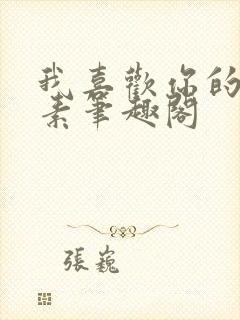 我喜歡你的
素筆趣閣
張巍